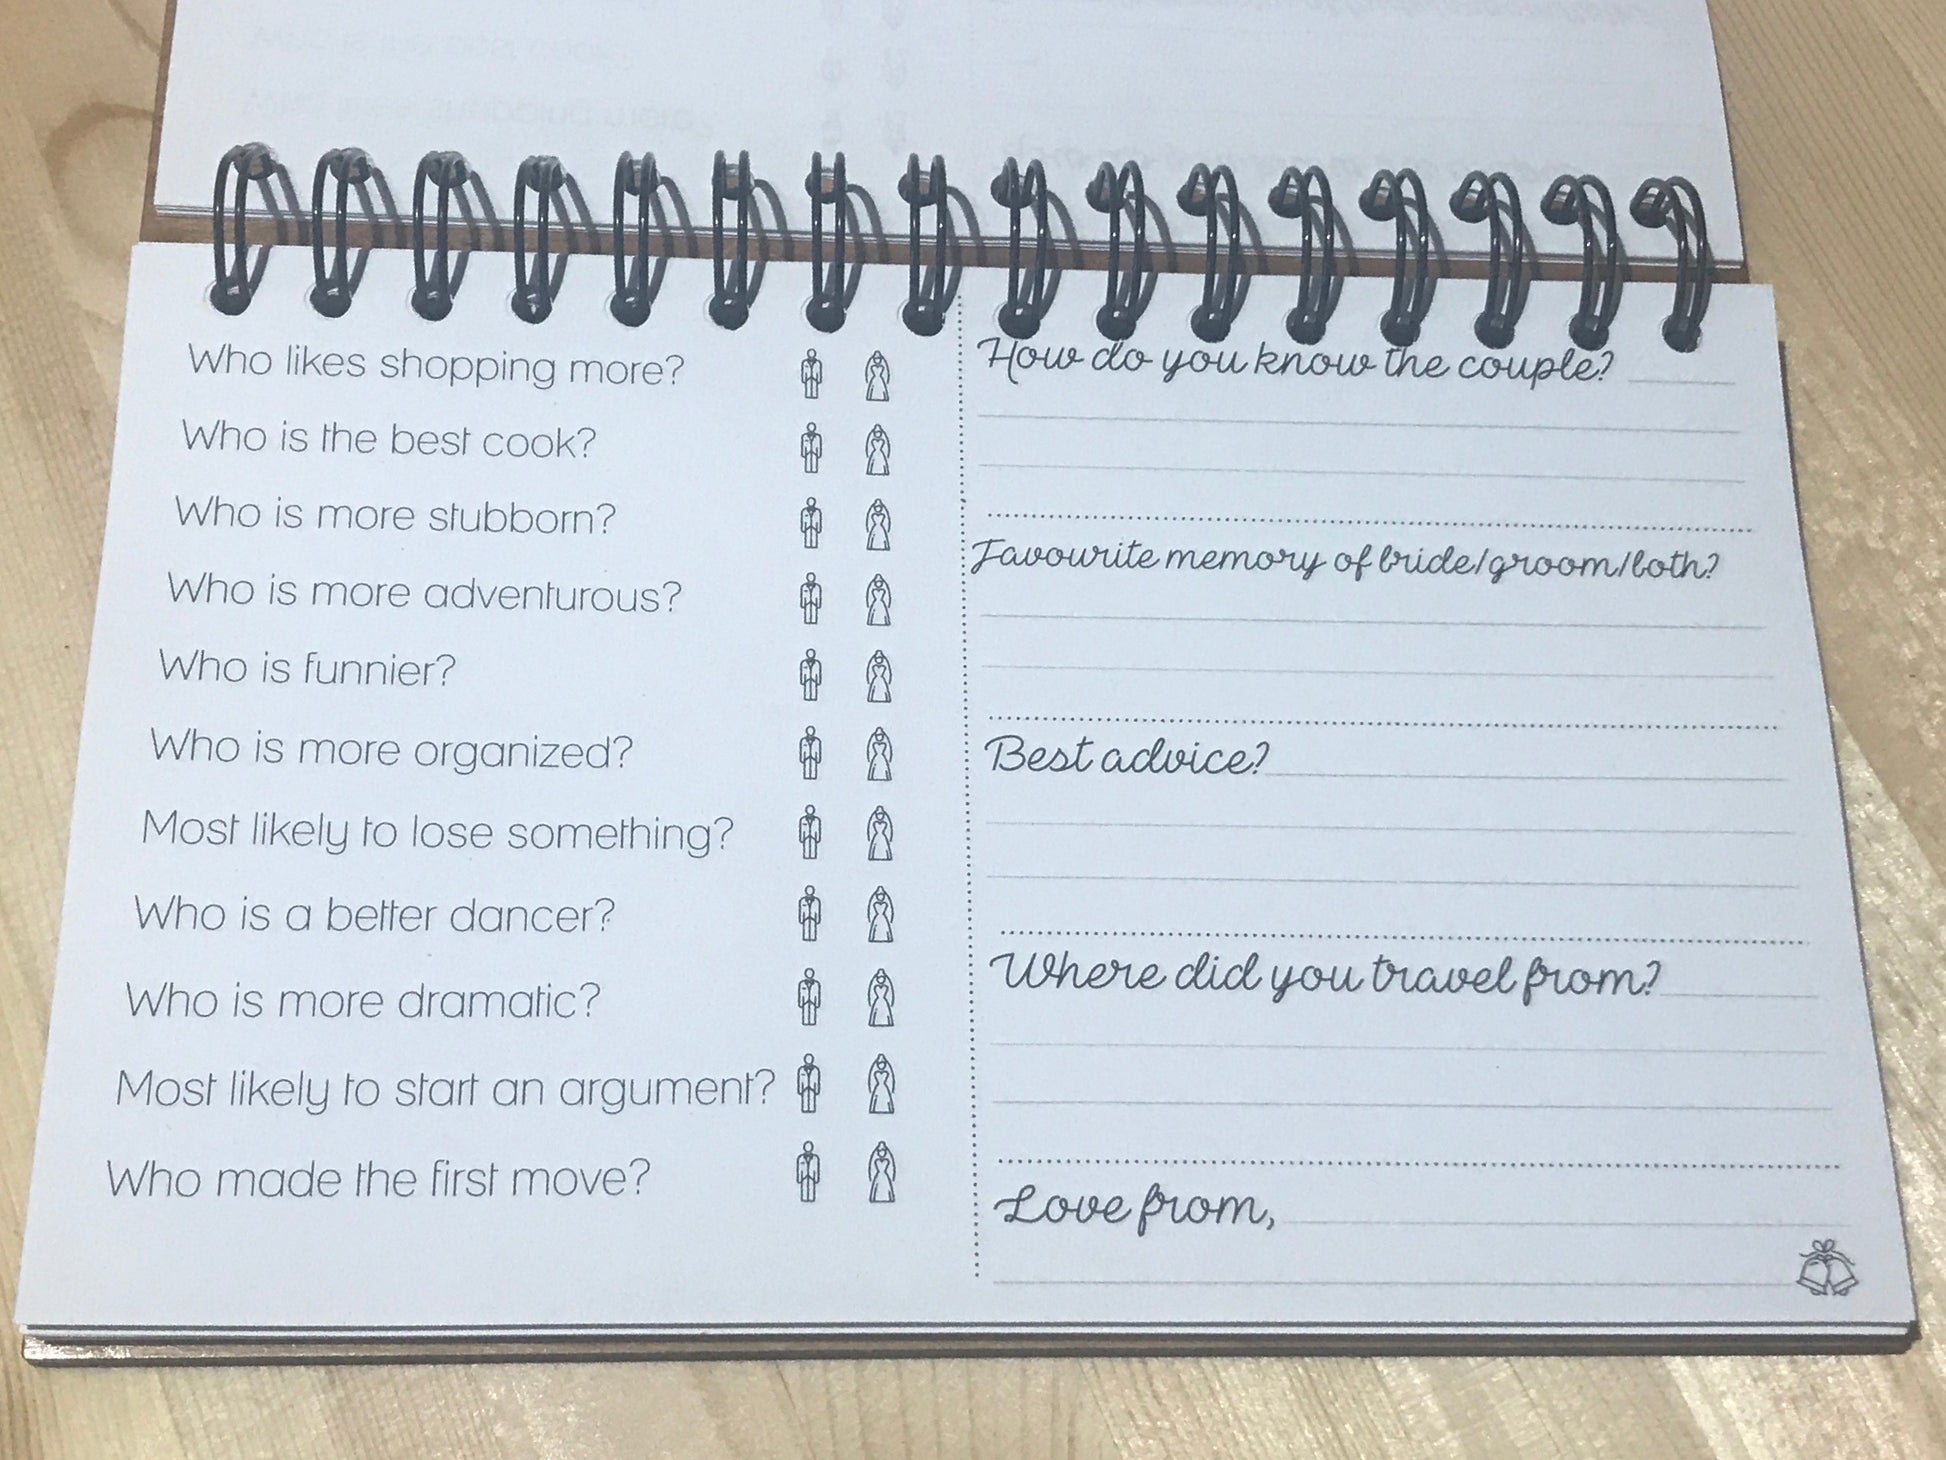 Who likes shopping more?
Who is the best cook?
Who is more stubborn?
Who is more adventurous?
Who is funnier?
Who is more organized?
Most likely to lose something?
Who is a better dancer?
Who is more dramatic?
Most likely to start an argument?
Who made the first move?
How do you know the couple?
Favourite memory of bride/groom/both?
Best advice?
Where did you travel from?
Love from,